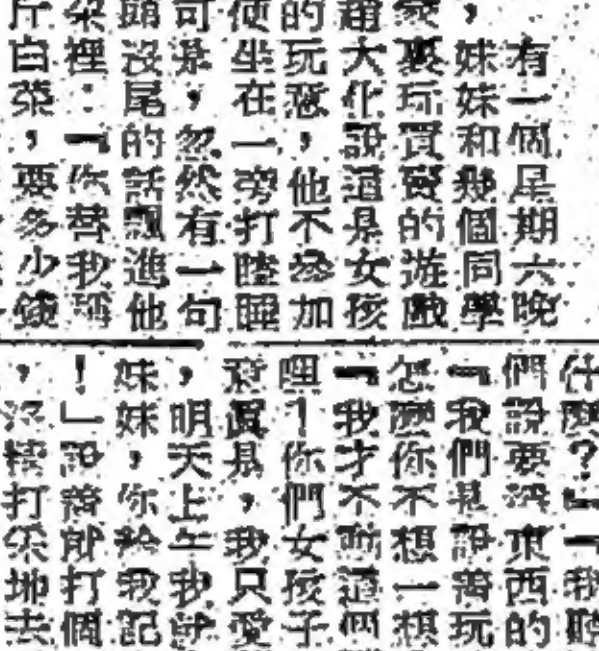 有一個星期六晚
，妹妹和幾個同學
家裏玩買賣的遊戲
趙大化說這是女孩
的玩意，他不參加
便坐在一旁打瞌睡
可是，忽然有一句
頭沒尾的話飄進他
朵裡：『你替我稱
斤白菜，要多少錢
什麼？』『我聽
們說要 東西的
『我們是說着玩
怎麼你不想一想
『我才不動這個
哩！你們女孩子
真是，我只愛
，明天上午我
妹妹，你給我記
！」說着卽打個
，沒精打采地去